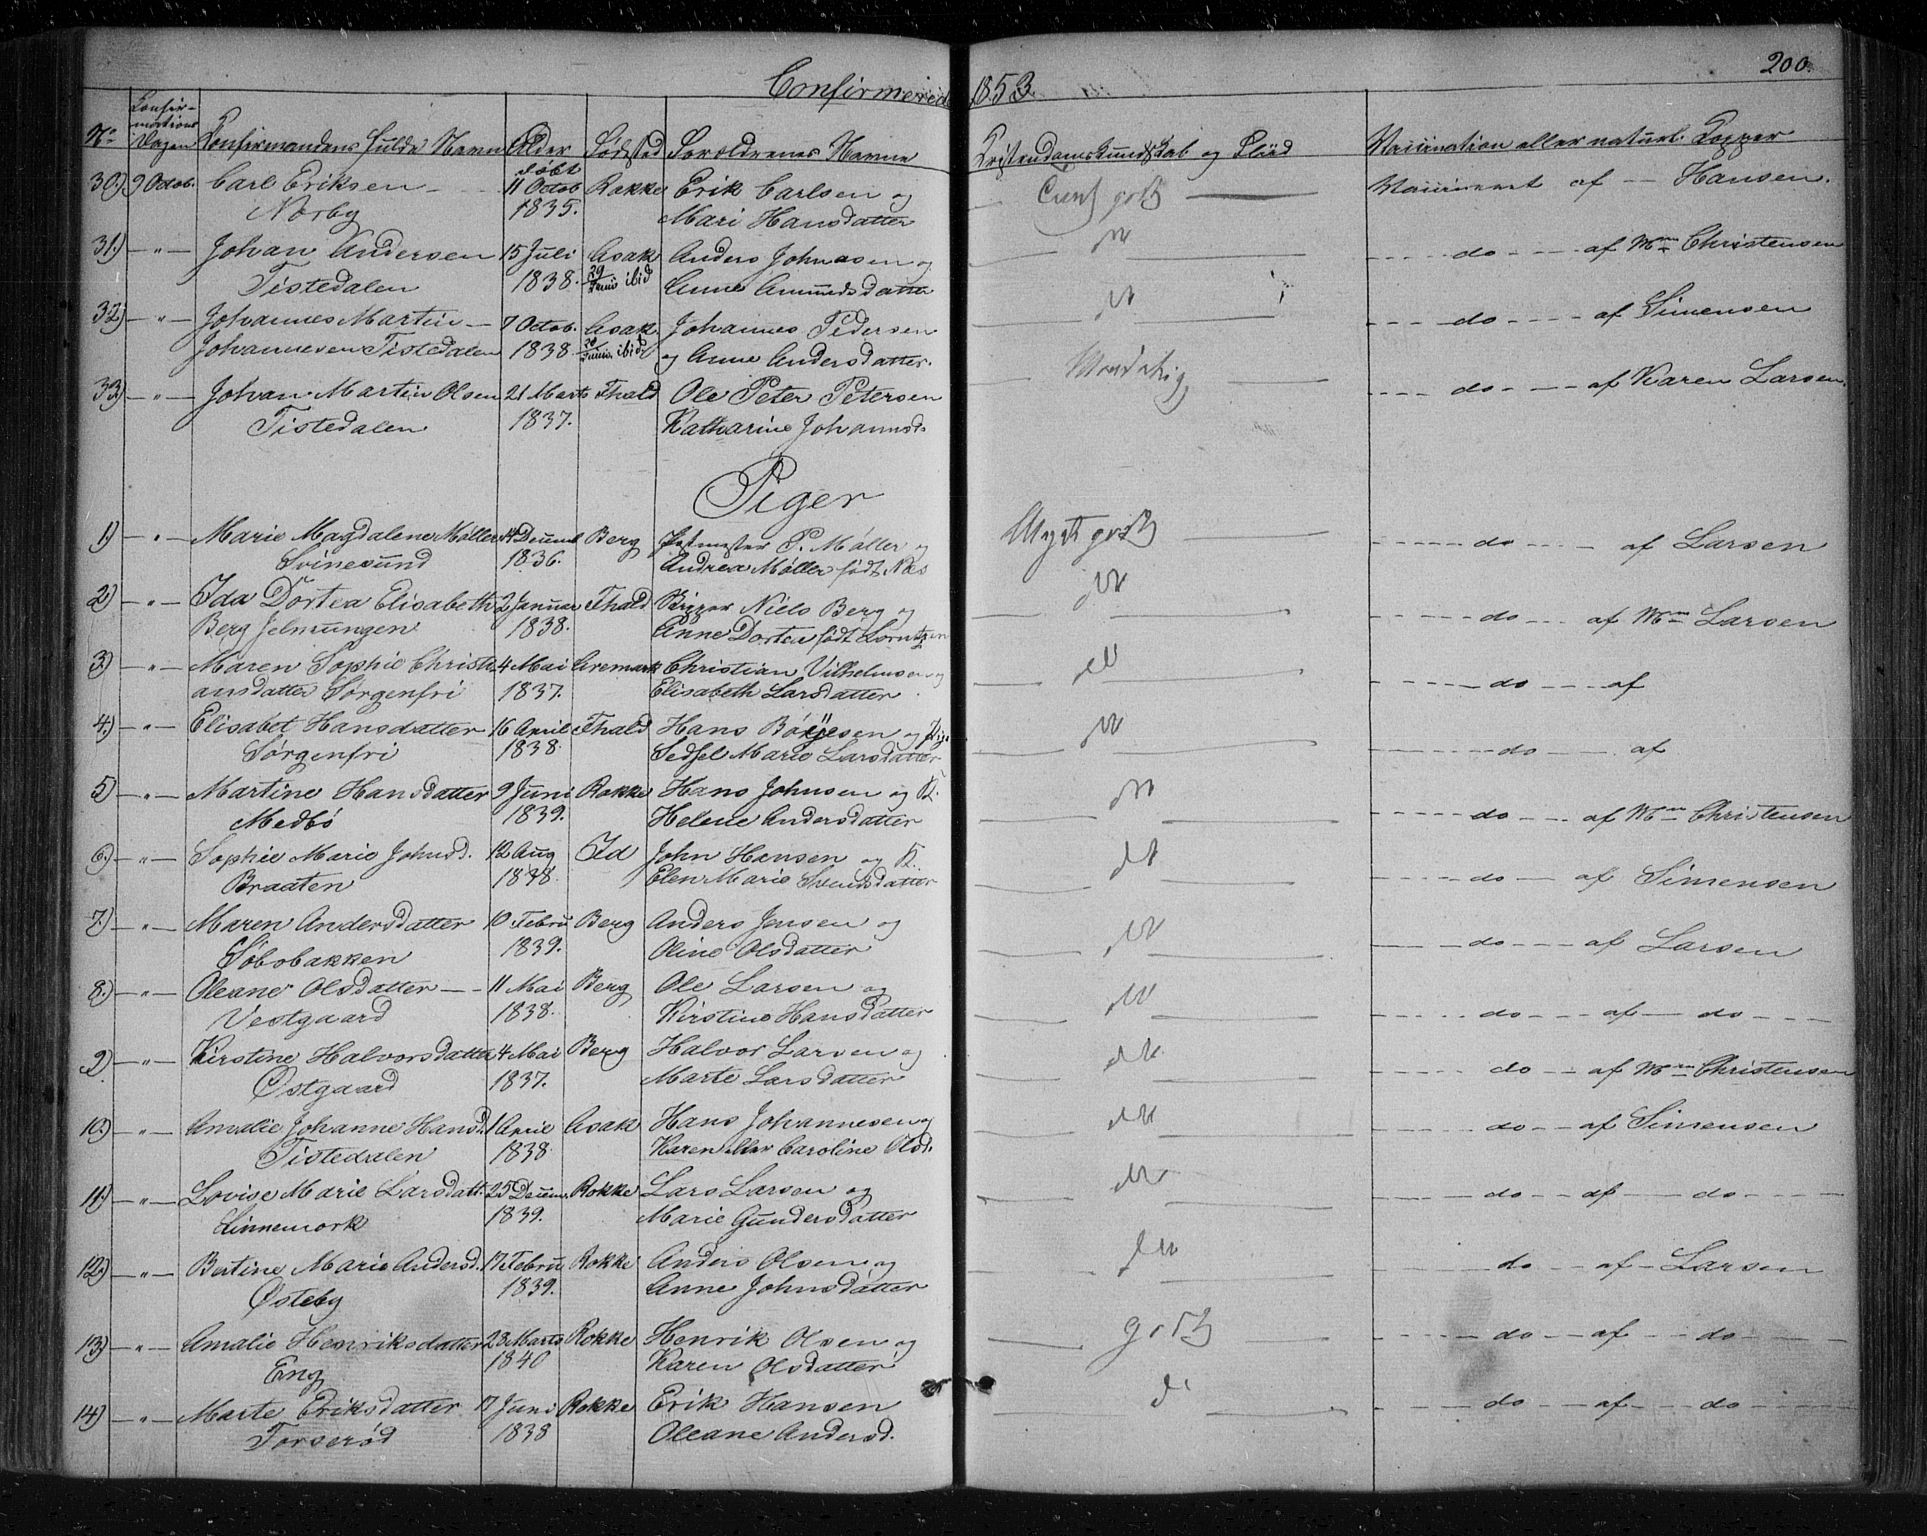 Confirmerede 1853.
200.
No
Confir-
mations
Dagen
Confirmandens fulde Navn
Alder
Døbt
Fødested
Forældrenes Navne
Kristendomskundskab og Flid
Vaccination eller naturl. Kopper
30) 9 Octob. Carl Eriksen 11 Octob Rokke Erik Carlsen og Vaccineret af — Hansen.
Norby 1835. Mari Hansdatter
31.) —"— Johan Andersen 15 Juli Asak Anders Johnsen og do af Mm Christensen
Tistedalen 1838. ibid Anne Amundsdatter
32) —"— Johannes Martin 7 Octob. Asak Johannes Pedersen do af Simensen
Johannesen Tistedalen 1838. ibid og Anne Andersdatter.
33) —"— Johan Martin Olsen 21 Marts Thald Ole Peter Petersen do af Karen Larsen.
Tistedalen 1837. Katharine Johannsd.
Piger
1.) —"— Marie Magdalene Møller 14 Decembr Berg P. Møller og Meget godt do af Larsen
Svinesund 1836. Andrea Møller født Næs
2) —"— Ida Dortea Elisabeth 2 Januar Thald Niels Berg og do af Mm Larsen
Berg 1838. Anne Dortea født Lorntzen
3) —"— Maren Sophie Christi 4 Mai Aremark Christian Vilhelmsen og do af
ansdatter Sørgenfri 1837. Elisabeth Larsdatter
4.) —"— Elisabet Hansdatter 16 April Thald Hans Børjesen og do af
Sørgenfri 1838. Sedsel Marie Larsdatter
5) —"— Martine Hansdatter 9 Juni Rokke Hans Johnsen og K. do af Mm Christensen
Medbö 1839. Helene Andersdatter
6.) —"— Sophie Marie Johnsd. 12 Aug Id John Hansen og K. do af Simensen
Braaten 1838. Elen Marie Svendsdatter
7) —"— Maren Andersdatter 10 Febru Berg Anders Jensen og do af Larsen
Söbobakken 1839. Oline Olsdatter
8.) —"— Oleane Olsdatter 11 Mai Berg Ole Larsen og do af do
Vestgaard 1838. Kirstine Hansdatter
9) —"— Kirstine Halvorsdatter 4 Mai Berg Halvor Larsen og do af Mm Christensen
Østgaard 1837. Marte Larsdatter
10.) —"— Amalie Johanne Hansd. 1 April Asak Hans Johannesen og do af Simensen
Tistedalen 1838 Karen eller Caroline Olsd.
11.) —"— Lovise Marie Larsdatt. 25 Decem. Rokke Lars Larsen og do af do
Linnemork 1839. Marie Gundersdatter
12.) —"— Bertine Marie Andersd. 17 Febru Rokke Anders Olsen og do af Larsen
Østeby 1839. Anne Johnsdatter
13.) —"— Amalie Henriksdatter 23 Marts Rokke Henrik Olsen og godt do af do
Eng 1840 Karen Olsdatter
14) —"— Marte Eriksdatter 17 Juni Rokke Erik Hansen do af do
Torserød 1838 Oleane Andersd.